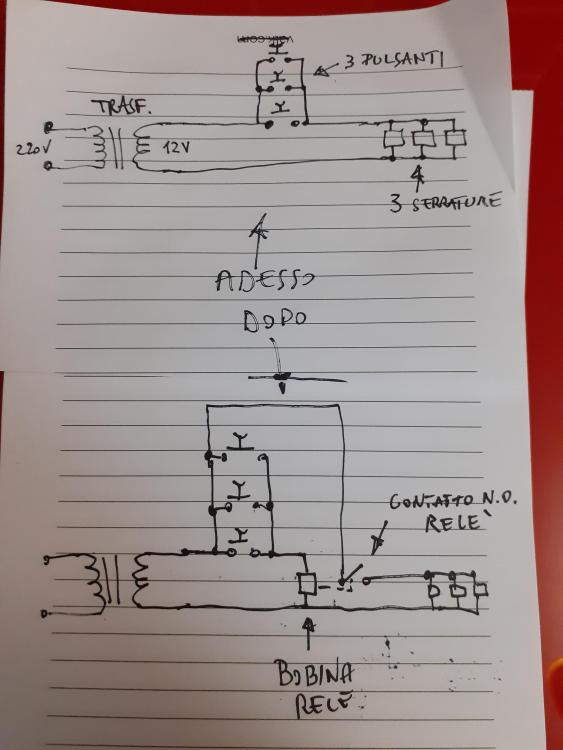 3 PULSANTI
TRASF.
220V
12V
3 SERRATURE
ADESSO
DOPO
CONTATTO N.O.
RELÈ
BOBINA
RELÈ